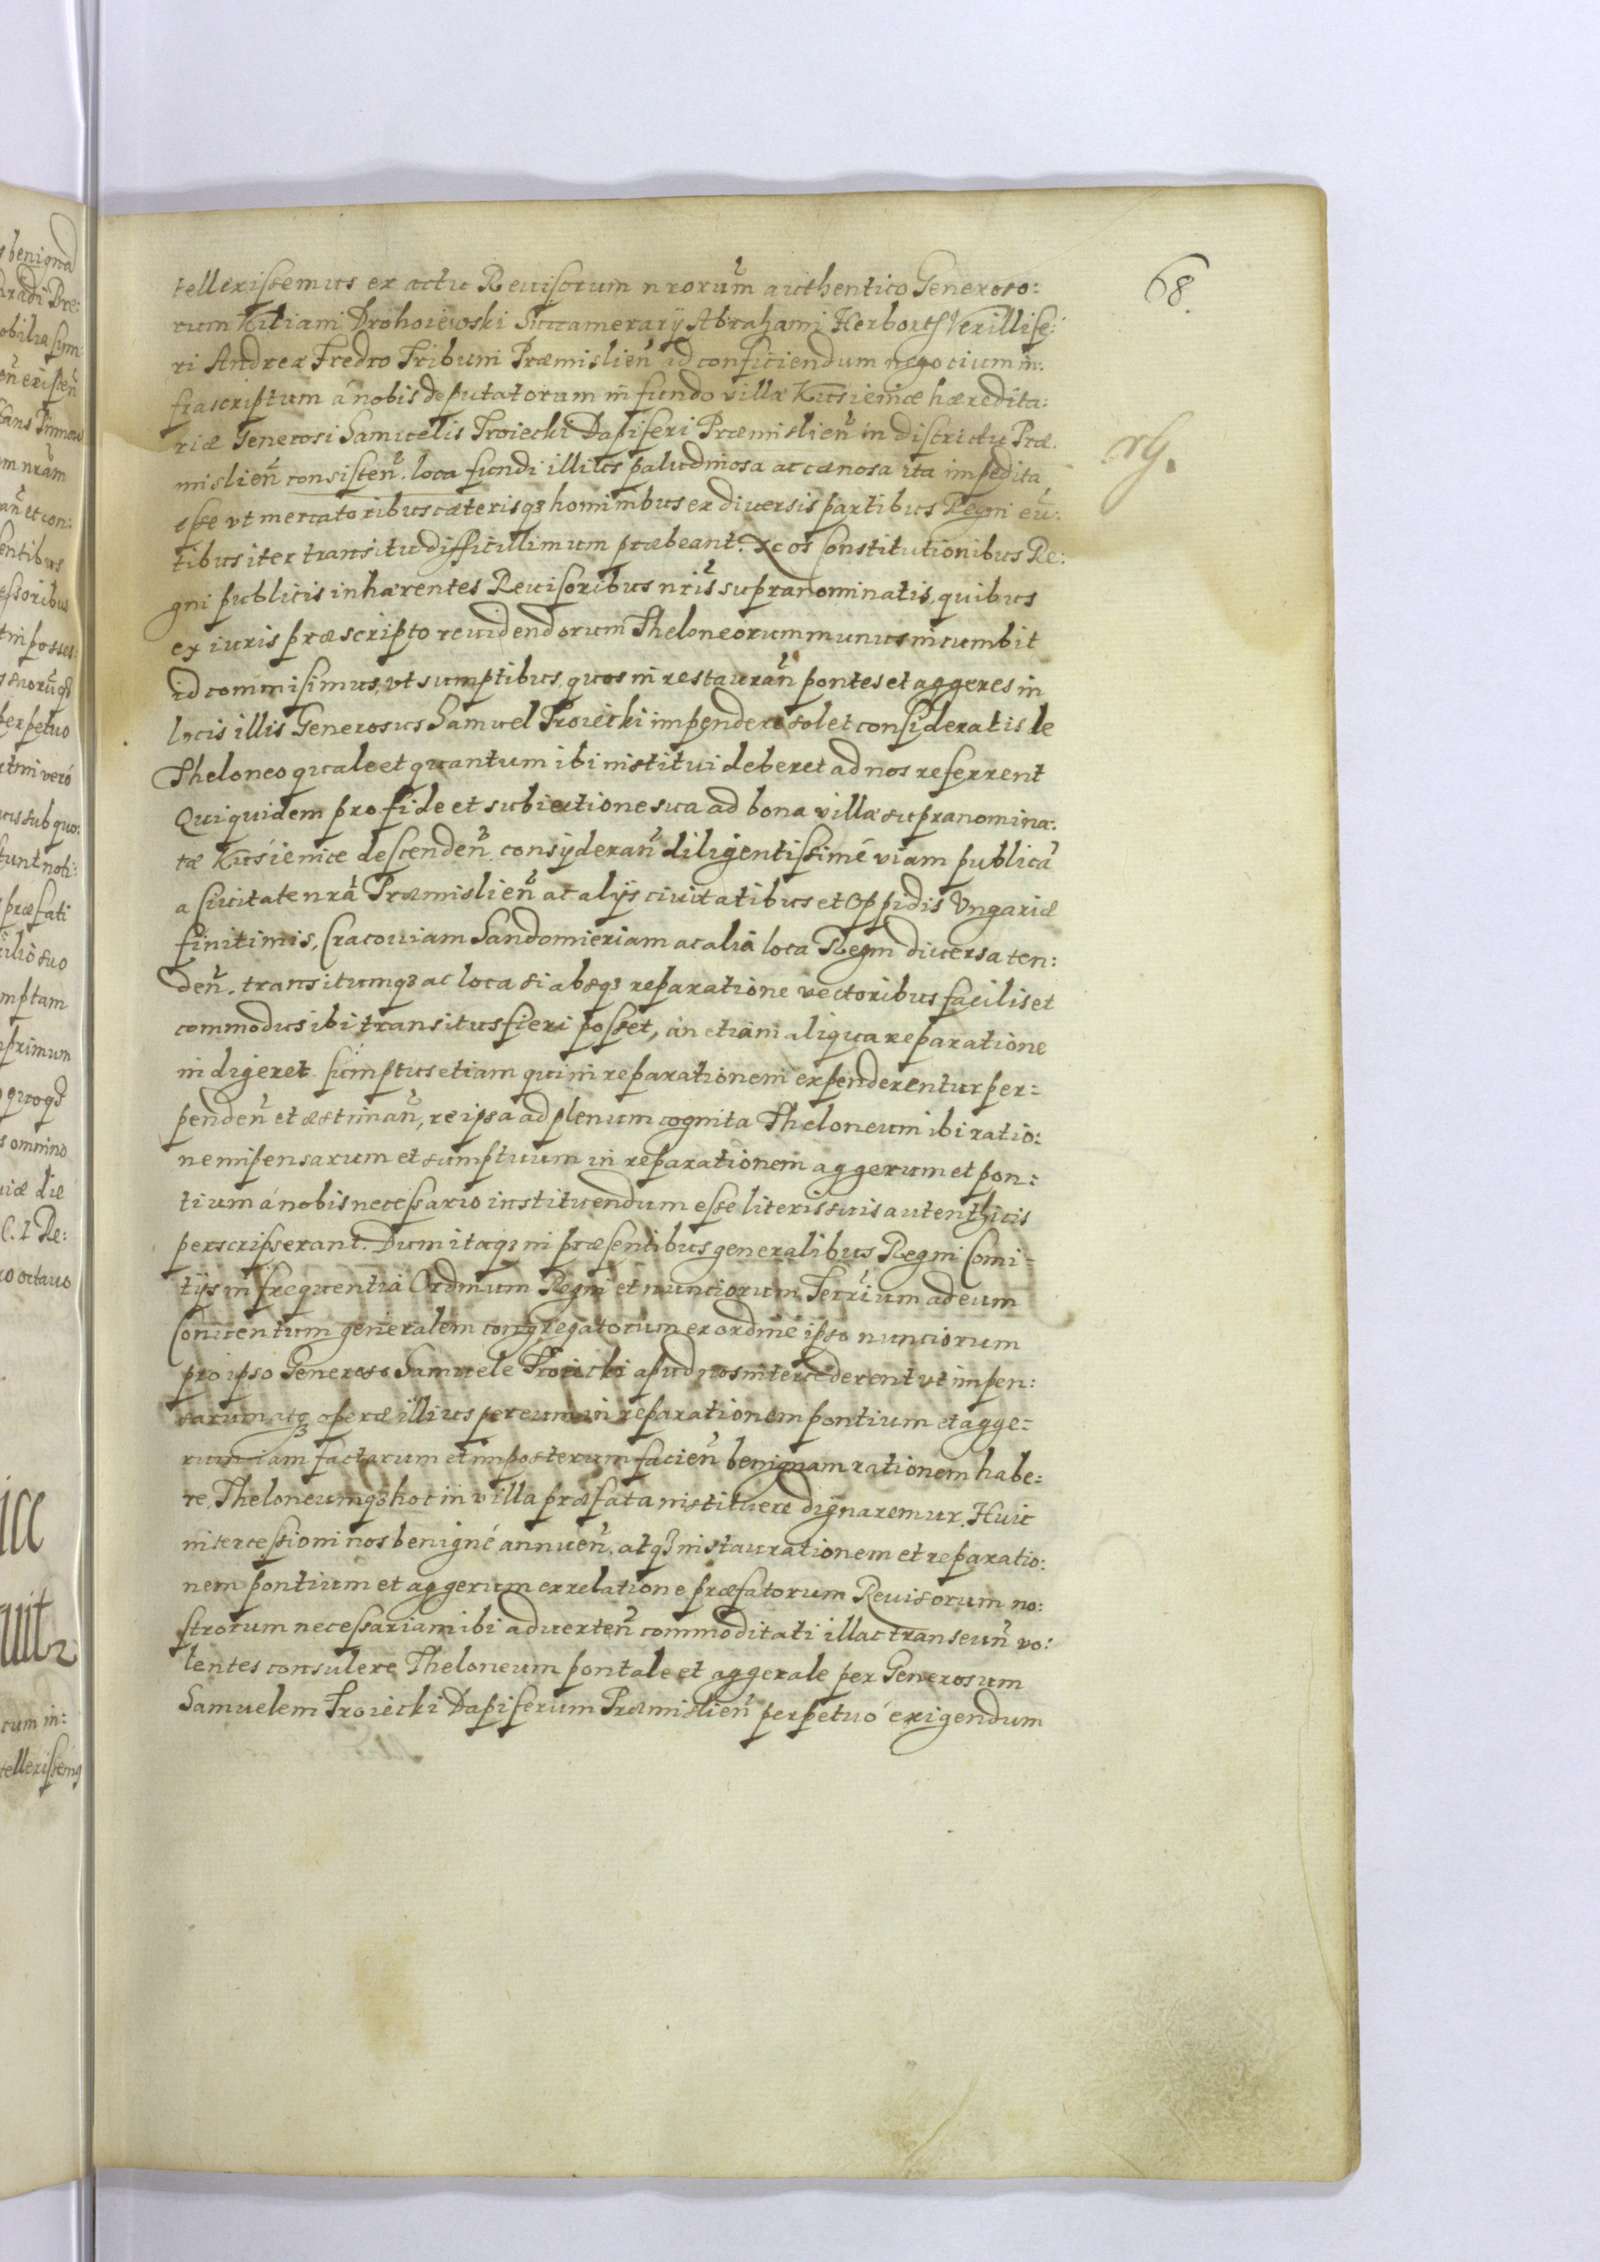 68.
tellexissemus ex actu Reuisorum nrorum authentico Generoso:
rum Kiliani Drohoiewski Succamerarij Abrahami Herbort Vexillife:
ri Andreæ Fredro Tribuni Præmislien̄ id conficiendum negocium in:
frascriptum á nobis deputatorum in fundo villæ Kusienicæ hæredita:
riæ Generosi Samuelis Troiecki Dapiferi Præmislien̄ in districtu Præ
mislien̄ consisten̄. loca fundi illius paludinosa ac cænosa ita impedita
esse vt mercatoribus cæterisq3 hominibus ex diuersis partibus Regni eū:
tibus iter transitu difficillimum præbeant. Nos Constitutionibus Re:
gni publicis inhærentes Reuisoribus nris̄ supranominatis, quibus
ex iuris præscripto reuidendorum Theloneorum munus incumbit
id commisimus, vt sumptibus, quos in restauran̄ pontes et aggeres in
locis illis Generosus Samuel Troiecki impendere solet consideratis de
Theloneo quale et quantum ibi institui deberet ad nos referrent
Qui quidem pro fide et subiectione sua ad bona villæ supranomina:
tæ Kusienice descenden̄ consyderan̄ diligentissimé viam publicā
a Ciuitate nrā Præmislien̄ ac alijs ciuitatibus et Oppidis Vngariæ
finitimis, Cracouiam Sandomieriam ac alia loca Regni diuersa ten:
den̄. transitumq3 ac loca si absq3 reparatione vectoribus facilis et
commodus ibi transitus fieri posset, an etiam aliqua reparatione
indigeret. sumptus etiam qui in reparationem expenderentur per=
penden̄ et æstiman̄, re ipsa ad plenum cognita Theloneum ibi ratio:
ne inpensarum et sumptuum in reparationem aggerum et pon:
tium á nobis necessario instituendum esse literis suis autenthicis
perscripserant. Dum itaq3 in præsentibus generalibus Regni Comi=
tijs in frequentia Ordinum Regni et nunciorum Terr̄ium ad eum
Conuentum generalem congregatorum ex ordine ipso nunciorum
pro ipso Generoso Samuele Troiecki apud nos intercederent vt impen:
sarum atq3 operæ illius per eum in reparationem pontium et agge=
rum iam factarum et imposterum facien̄ benignam rationem habe=
re, Theloneumq3 hoc in villa præfata instituere dignaremur. Huic
intercessioni nos benigné annuen̄. atq3 instaurationem et reparatio:
nem pontium et aggerum ex relatione præfatorum Reuisorum no:
strorum necessariam ibi aduerten̄ commoditati illac transeun̄ vo:
lentes consulere Theloneum pontale et aggerale per Generosum
Samuelem Troiecki Dapiferum Præmislien̄ perpetuó exigendum